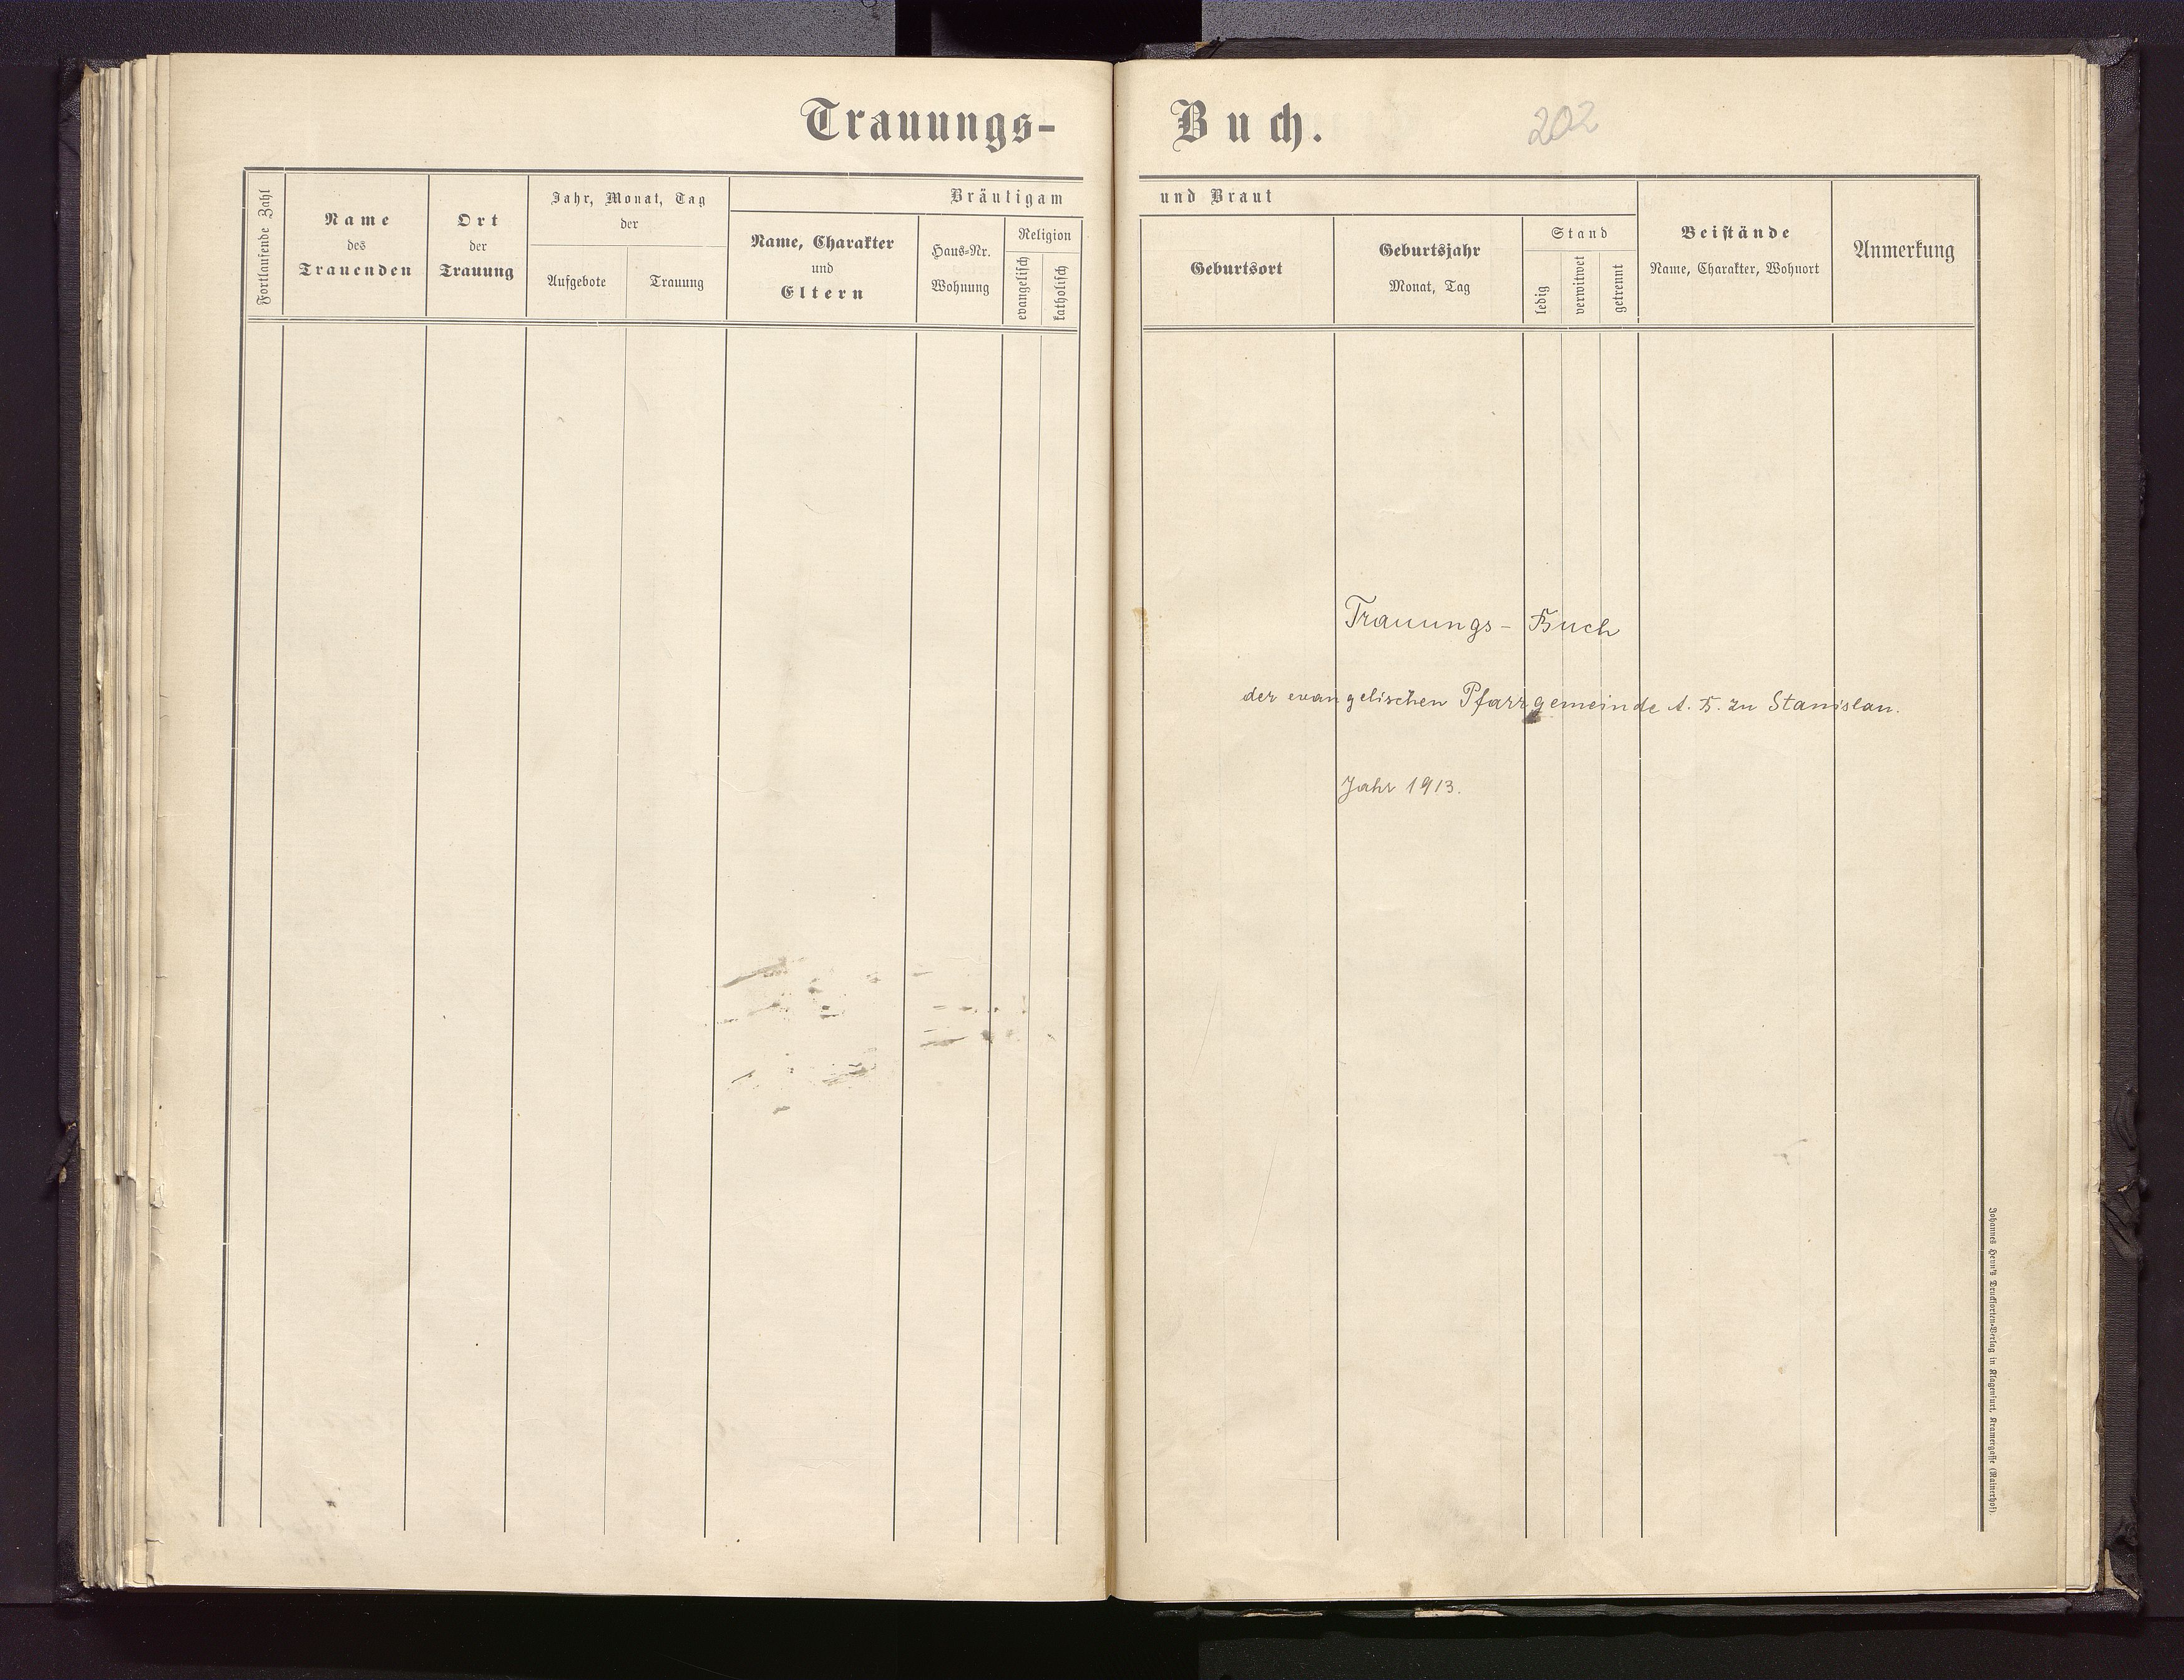 Trauungs-
Buch.
202
Fortlaufende Zahl
Name
des
Trauenden
Ort
der
Trauung
Jahr, Monat, Tag
der
Aufgebote
Trauung
Bräutigam
Name, Charakter
und
Eltern
Haus-Nr.
Wohnung
Religion
evangelisch
katholisch
und Braut
Geburtsort
Geburtsjahr
Monat, Tag
Stand
ledig
verwitwet
getrennt
Beistände
Name, Charakter, Wohnort
Anmerkung
Trauungs-Buch
der evangelischen Pfarrgemeinde A. B. zu Stanislau.
Jahr 1913.
Johannes Heyn's Drucksorten-Verlag in Klagenfurt, Kramergasse (Rainerhof).